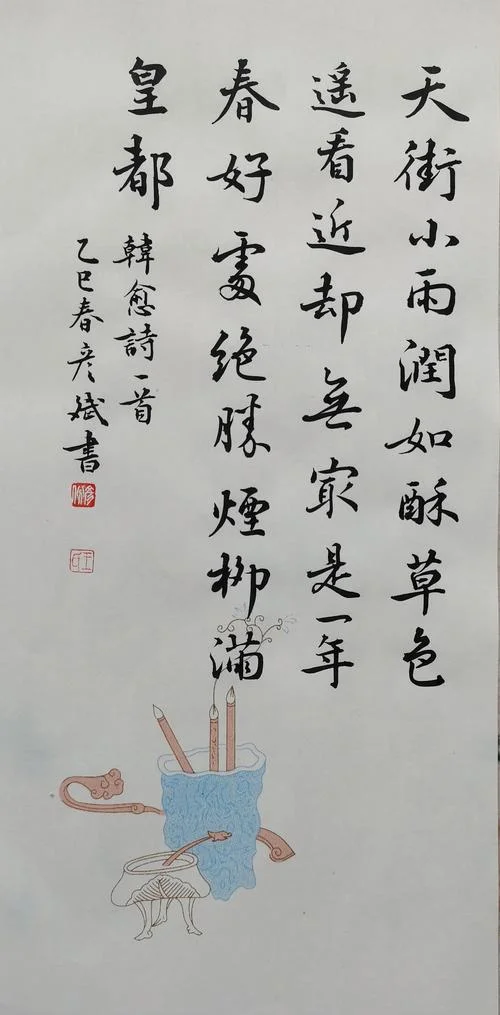 天街小雨潤如酥草色
遥看近却無最是一年
春好處絶勝煙柳滿
皇都
韓愈詩一首
乙巳春彦斌書